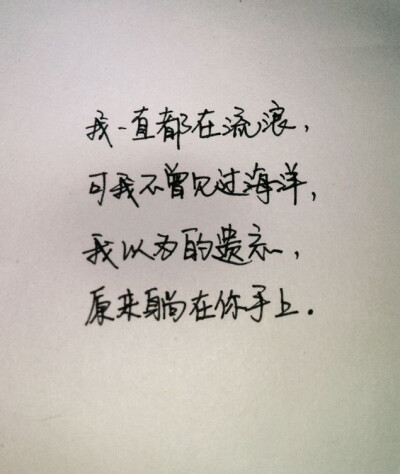 我一直都在流浪，
可我不曾见过海洋，
我以为的遗忘，
原来躺在你手上.